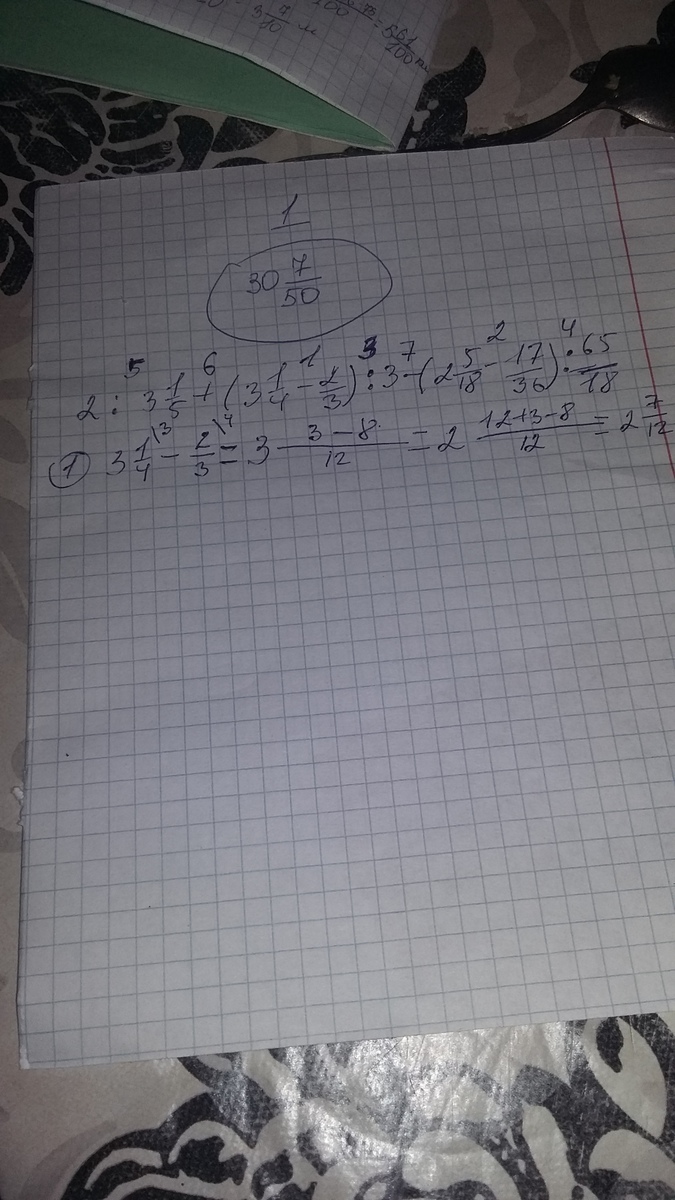 3 7/10 м
100 = 5 61/100 м
1
30 7/50
5 6 1 3 7 2 4
2 : 3 1/5 + (3 1/4 - 2/3) : 3 - (2 5/18 - 17/36) : 65/18
① 3 1/4 \3 - 2/3 \4 = 3 (3-8)/12 = 2 (12+3-8)/12 = 2 7/12